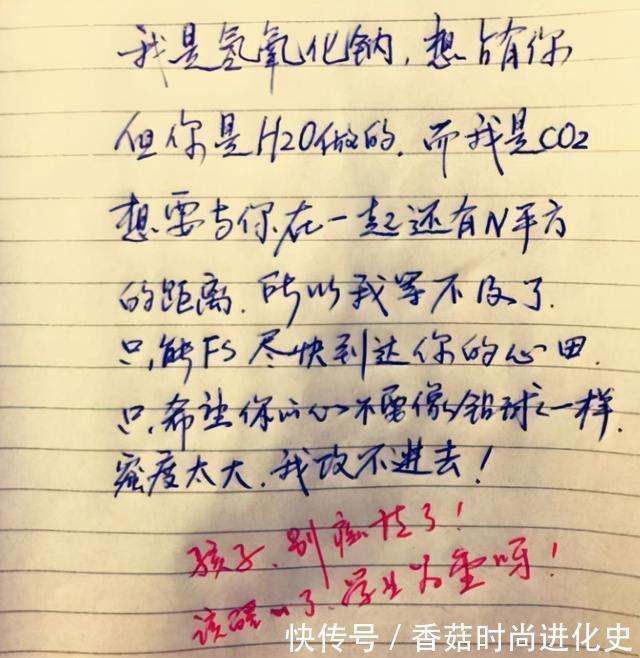 我是氢氧化钠,想占有你
但你是H2O做的.而我是CO2
想要与你在一起还有N平方
的距离.所以我等不及了.
只能FS尽快到达你的心田.
只希望你的心不要像铅球一样.
密度太大.我攻不进去!
孩子.别痴情了!
该醒醒了.学业为重呀!
快传号/香菇时尚进化史